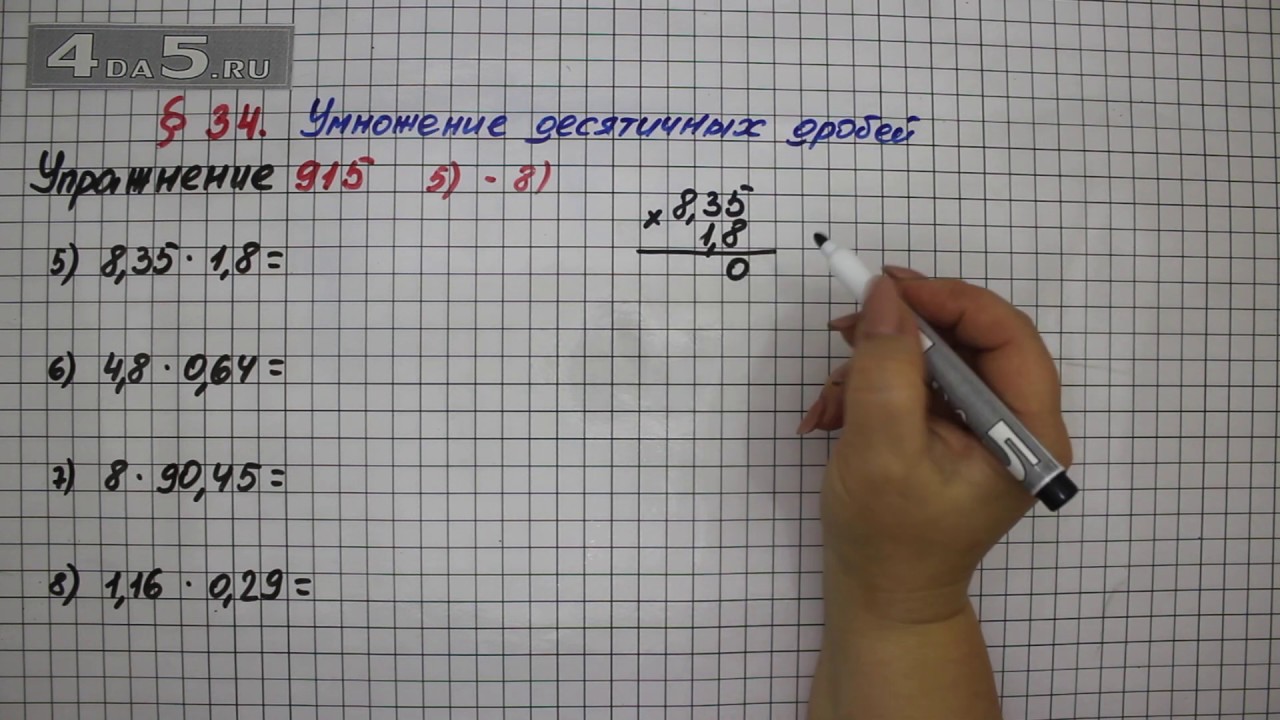 4DA5.RU
§ 34. Умножение десятичных дробей
Упражнение 915 5) - 8)
5) 8,35 · 1,8 =
6) 4,8 · 0,64 =
7) 8 · 90,45 =
8) 1,16 · 0,29 =
× 8,35
1,8
0